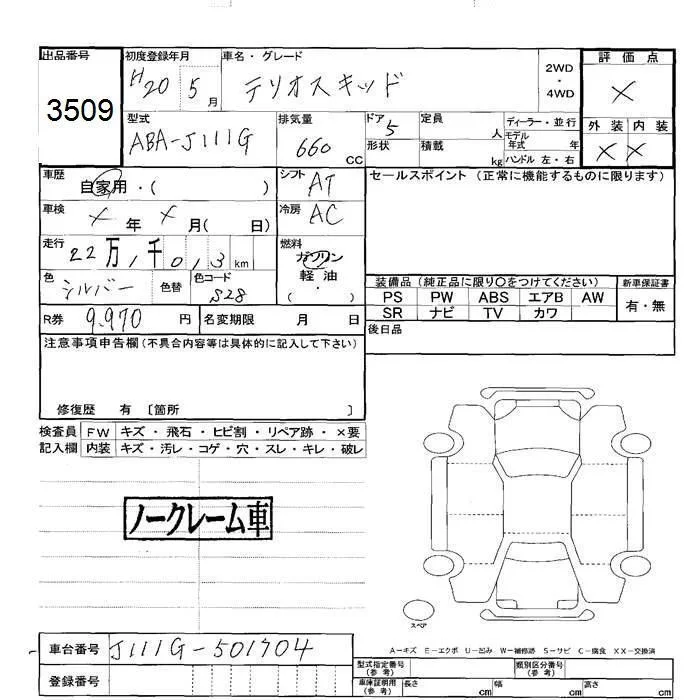 出品番号
3509
初度登録年月
H20 5 月
車名・グレード
テリオスキッド
2WD
・
4WD
評価点
×
外装 内装
× ×
型式
ABA-J111G
排気量
660 CC
ドア
5
形状
定員
人
積載
kg
ディーラー・並行
モデル年式 年
ハンドル 左・右
車歴
自家用・( )
シフト
AT
セールスポイント (正常に機能するものに限ります)
車検
× 年 × 月( 日)
冷房
AC
走行
22 万 , 千 0 , 3 km
燃料
ガソリン
軽油
・
( )
色
シルバー
色替
色コード
S28
装備品 (純正品に限り〇をつけてください)
PS PW ABS エアB AW
SR ナビ TV カワ
新車保証書
有・無
R券 9.970 円
名変期限 月 日
後日品
注意事項申告欄 (不具合内容等は具体的に記入して下さい)
修復歴 有 〔箇所 〕
検査員記入欄
FW キズ・飛石・ヒビ割・リペア跡・×要
内装 キズ・汚レ・コゲ・穴・スレ・キレ・破レ
ノークレーム車
スペア
A-キズ E-エクボ U-凹み W-補修跡 S-サビ C-腐食 XX-交換済
車台番号 J111G-501704
登録番号
型式指定番号 (参考)
類別区分番号 (参考)
車庫証明用 (参考) 長さ cm 幅 cm 高さ cm